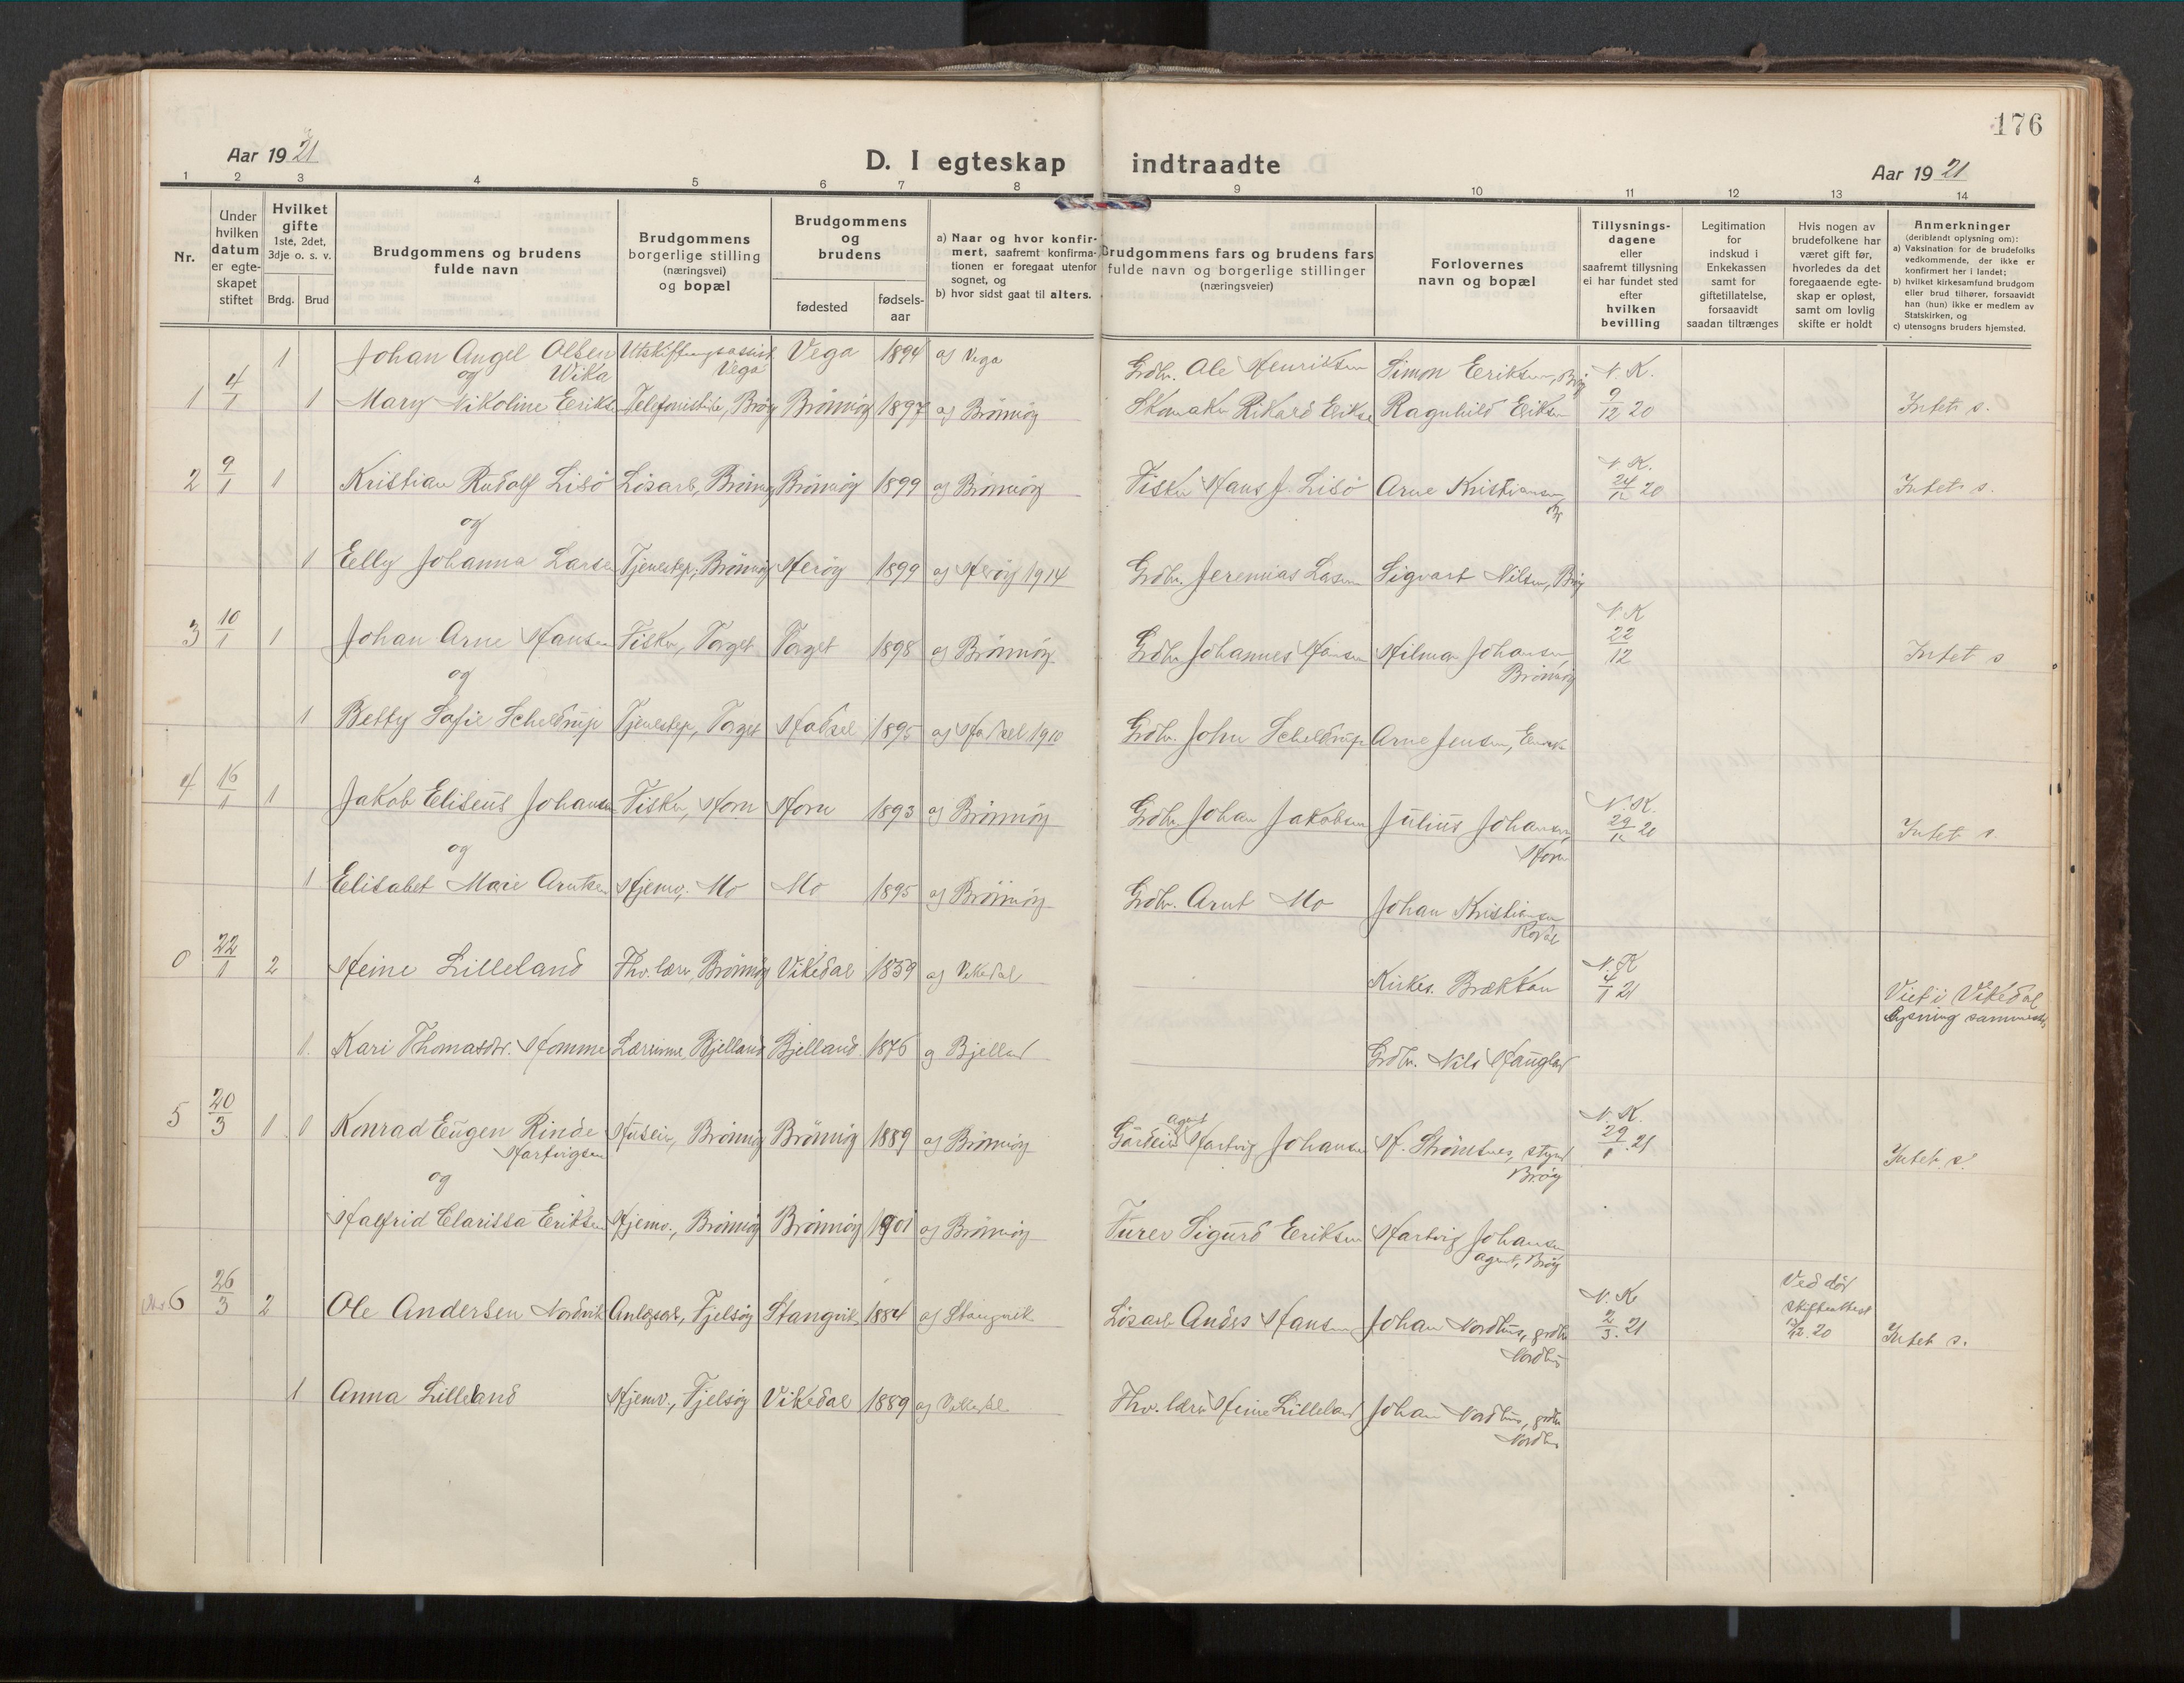 176
Aar 1921
D. I egteskap indtraadte
Aar 1921
1 2 3 4 5 6 7 8 9 10 11 12 13 14
Nr.
Under hvilken datum er egteskapet stiftet
Hvilket gifte 1ste, 2det, 3dje o. s. v.
Brdg. Brud
Brudgommens og brudens fulde navn
Brudgommens borgerlige stilling (næringsvei) og bopæl
Brudgommens og brudens
fødested
fødsels-aar
a) Naar og hvor konfirmert, saafremt konfirmationen er foregaat utenfor sognet, og
b) hvor sidst gaat til alters.
Brudgommens fars og brudens fars fulde navn og borgerlige stillinger (næringsveier)
Forlovernes navn og bopæl
Tillysningsdagene eller saafremt tillysning ei har fundet sted efter hvilken bevilling
Legitimation for indskud i Enkekassen samt for giftetillatelse, forsaavidt saadan tiltrænges
Hvis nogen av brudefolkene har været gift før, hvorledes da det foregaaende egteskap er opløst, samt om lovlig skifte er holdt
Anmerkninger (deriblandt oplysning om):
a) Vaksination for de brudefolks vedkommende, der ikke er konfirmert her i landet;
b) hvilket kirkesamfund brudgom eller brud tilhører, forsaavidt han (hun) ikke er medlem av Statskirken, og
c) utensogns bruders hjemsted.
1 Johan Angel Olsen Utskiftningsassist Vega 1894 a) Vega Grdbr. Ole Henriksen Simon Eriksen, Brøy N. K.
og Wika Vega
1 4/1 1 Mary Nikoline Eriksen Telefonistinde, Brøy Brönnöy 1897 a) Brönnöy Skomaker Rikard Eriksen Ragnhild Eriksen 9/12 20 Intet s.
2 9/1 1 Kristian Rudolf Lisö Lösarb., Brönnöy Brönnöy 1899 a) Brönnöy Fisker Hans J. Lisö Arne Kristiansen N. K. 24/12 20 Intet s.
og
1 Elly Johanna Larsen Tjenestep., Brönnöy Heröy 1899 a) Heröy 1914 Grdbr. Jeremias Larsen Sigvart Nilsen, Brøy
3 10/1 1 Johan Arne Hansen Fisker, Torget Torget 1898 a) Brönnöy Grdbr. Johannes Hansen Hilmar Johansen N. K 22/12 Intet s
og Brönnöy
1 Betty Sofie Scheldrup Tjenestep., Torget Hadsel 1895 a) Hadsel 1910 Grdbr. John Scheldrup Arne Jensen,
4 16/1 1 Jakob Eliseus Johansen Fisker, Horn Horn 1893 a) Brönnöy Grdbr. Johan Jakobsen Julius Johansen N. K. 29/12 20 Intet s
og Horn
1 Elisabet Marie Arntsen Hjemv. Mo Mo 1895 a) Brönnöy Grdbr. Arnt Mo Johan Kristiansen
0 22/1 2 Heine Lilleland Fhv. lærer, Brönnöy Vikedal 1859 a) Vikedal Kirkes. Brækkan N. K 4/1 21 Viet i Vikedal
Lysning sammesteds
1. Kari Thomasdtr. Homme Lærerinne Bjelland Bjelland 1876 a) Bjelland Grdbr. Nils Haugland
5 20/3 1 1 Konrad Eugen Rinde Huseier, Brönnöy Brönnöy 1889 a) Brönnöy Gårdeier agent Hartvig Johansen H. Strömsnes, styrm N. K. 29/1 21 Intet s.
Hartvigsen Brøy
og
Halfrid Clarissa Eriksen Hjemv., Brönnöy Brönnöy 1901 a) Brönnöy Sigurd Eriksen Hartvig Johansen
agent, Brøy
6 26/3 2 Ole Andersen Nordvik Anlægsarb., Fjelsöy Stangvik 1884 a) Stangvik Lösarb Anders Hansen Johan Nordhus, grdbr N. K 2/3 21 Ved död Skifteattest 12.20 Intet s.
Nordhus
1 Anna Lilleland Hjemv., Fjelsöy Vikedal 1889 a) Vikedal Fhv. lærer Heine Lilleland Johan Nordhus, grdbr
Nordhus